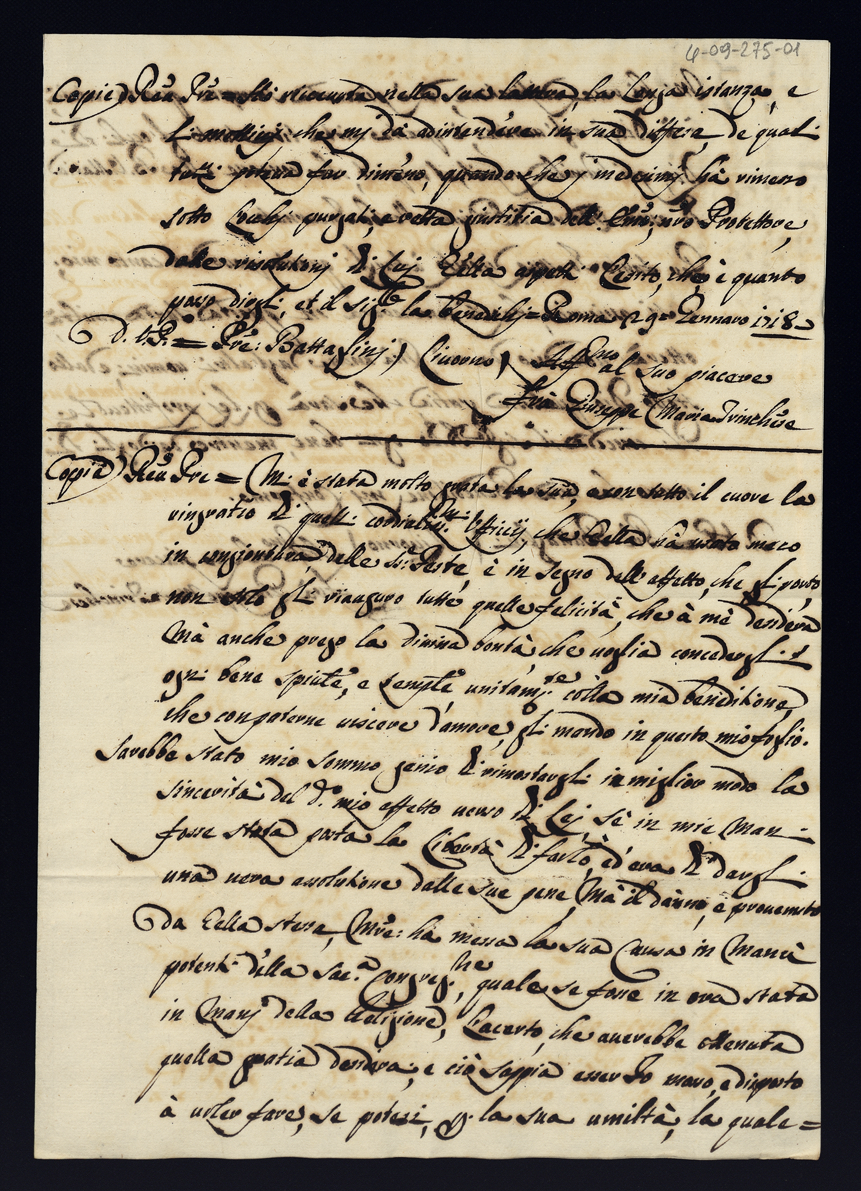 4-09-275-01
Copia) Reu: Pre = Hò riceuuta nella sua lettera, la longa istanza, e
li mottivi che mi dà ad intendere in sua diffesa, de quali
tutti poteva far dimeno, quando che i medesimi hà rimesso
sotto l' purgati, e retta giustitia dell' Em: nro Protettore,
dalle risolutioni di Lui Ella aspetti l'esito, che è quanto
posso dirgli, et il Sigre la benedichi = Roma 29 Gennaro 1718
D. V. P. = Pre: Battaglini) Livorno) Affmo al suo piacere
frà Giuseppe Maria
Copia) Reu Pre = Mi è stata molto grata la sua, e con tutto il cuore la
ringratio di quelli cordialissmi Ufficij, che Ella hà usato meco
in congiontura delle Ste Feste, è in segno dell' affetto, che gli porto,
non solo gli riauguro tutte quelle felicità, che à me desidera
Mà anche prego la divina bontà, che uoglia concedergli
ogni bene spirtle, e temple unitamte colla mia beneditione,
che con paterne viscere d'amore, gli mando in questo mio foglio.
Sarebbe stato mio sommo genio di rimostargli in miglior modo la
sincerità del do mio affetto uerso di Lei, se in mie Man-
fosse stata posta la Libertà di farlo, è d'era di dargli
una uera assolutione dalle sue pene, Mà il danno, è prouenuto
da Lella stessa, Mre: hà messa la sua Causa in Mani
potenti della Sac.a Congregne, quale se fosse in ora stata
in Mani della Religione, l'acerto, che auerebbe ottenuta
quella gratia desidera; e ciò sappia esser Io uero, e disposto
à uoler fare, se potessi, p. la sua umiltà, la quale =